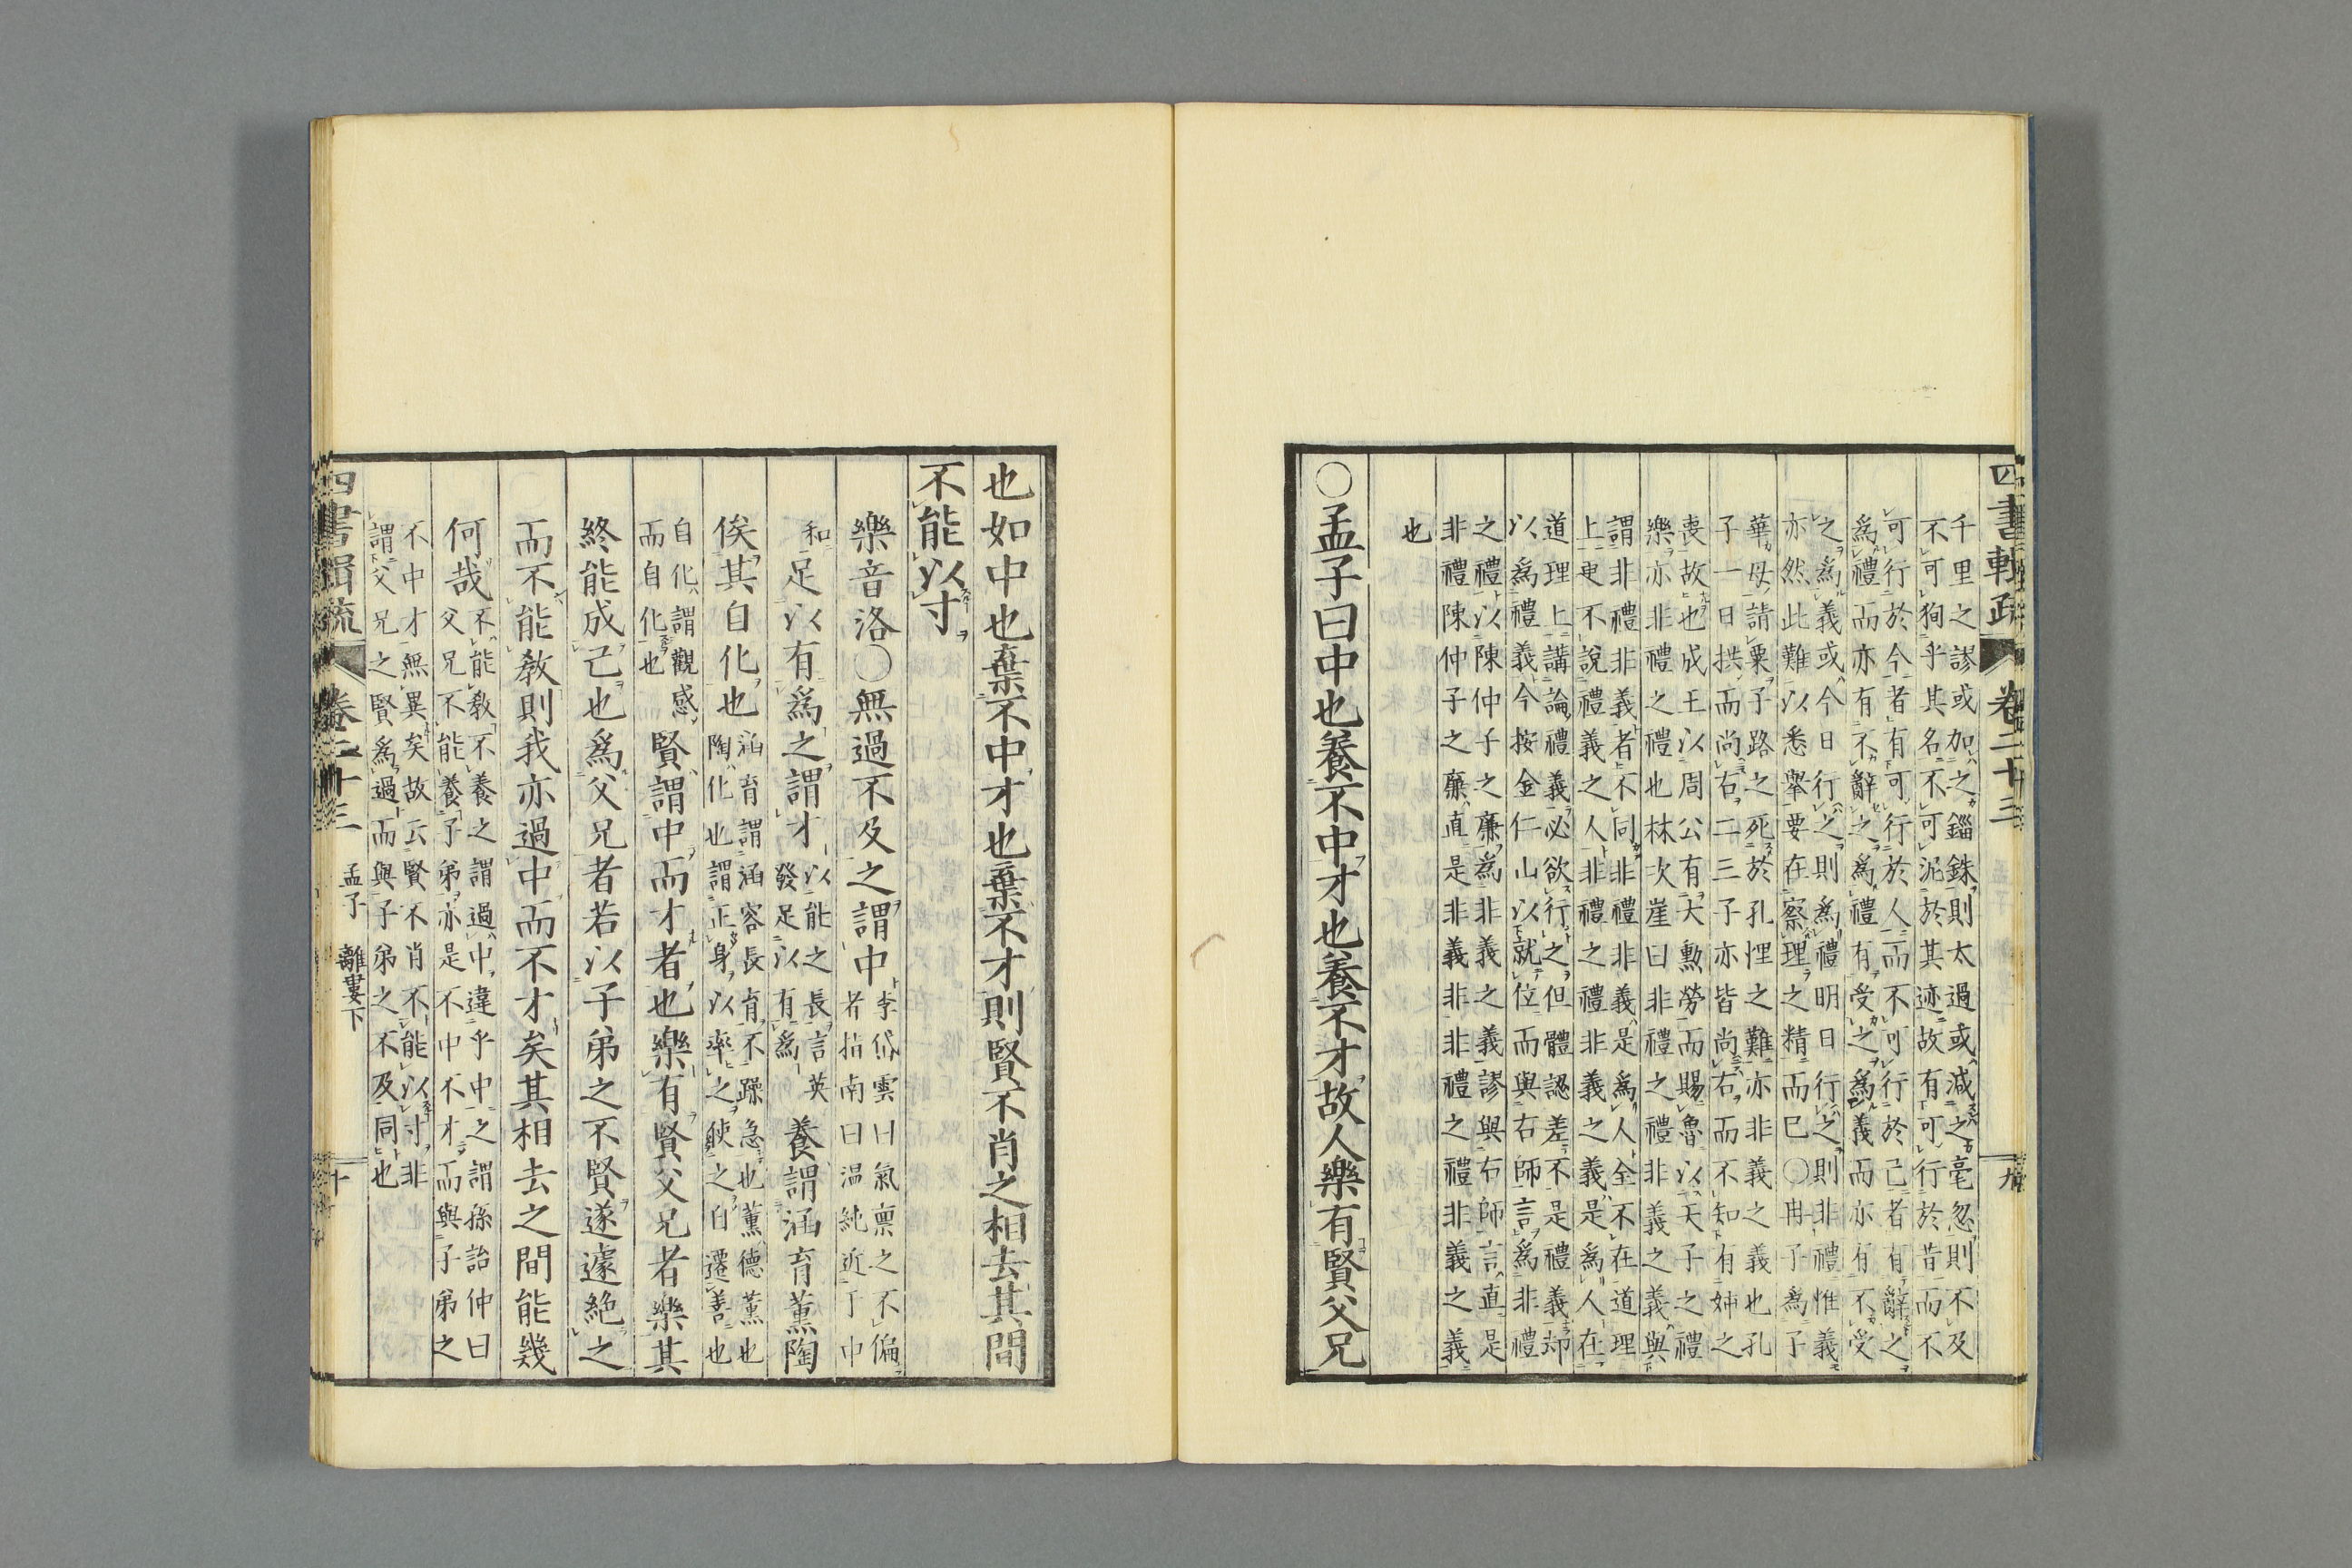 四書輯疏 卷二十三 九
千里之謬或加之錙銖則太過或減之毫忽則不及
不可狥乎其名不可泥於其迹故有可行於昔而不
可行於今者有可行於人而不可行於己者有辭之
爲禮而亦有不辭之爲禮有受之爲義而亦有不受
之爲義或今日行之則爲禮明日行之則非禮惟義
亦然此難以悉舉要在察理之精而已〇冉子爲子
華母請粟子路之死於孔悝之難亦非義之義也孔
子一日拱而尚右二三子亦皆尚右而不知有姉之
喪故也成王以周公有大勲勞而賜魯以天子之禮
樂亦非禮之禮也林次崖曰非禮之禮非義之義與
謂非禮非義者不同非禮非義是爲人全不在道理
上更不說禮義之人非禮之禮非義之義是爲人在
道理上講論禮義必欲行之但體認差不是禮義却
以爲禮義今按金仁山以就位而與右師言爲非禮
之禮以陳仲子之廉爲非義之義謬與右師言直是
非禮陳仲子之廉直是非義非非禮之禮非義之義
也
〇孟子曰中也養不中才也養不才故人樂有賢父兄
也如中也棄不中才也棄不才則賢不肖之相去其間
不能以寸
樂音洛〇無過不及之謂中李岱雲曰氣稟之不偏
者指南曰温純近于中
和足以有爲之謂才以能之長言英
發足以有爲養謂涵育薫陶
俟其自化也涵育謂涵容長育不躁急也薫德薫也
陶化也謂正身以率之使之自遷善也
自化謂觀感
而自化也賢謂中而才者也樂有賢父兄者樂其
終能成己也爲父兄者若以子弟之不賢遂遽絶之
而不能敎則我亦過中而不才矣其相去之間能幾
何哉不能敎不養之謂過中違乎中之謂孫詒仲曰
父兄不能養子弟亦是不中不才而與子弟之
不中才無異矣故云賢不肖不能以寸非
謂父兄之賢爲過而與子弟之不及同也
四書輯疏 卷二十三 孟子 離婁下 十